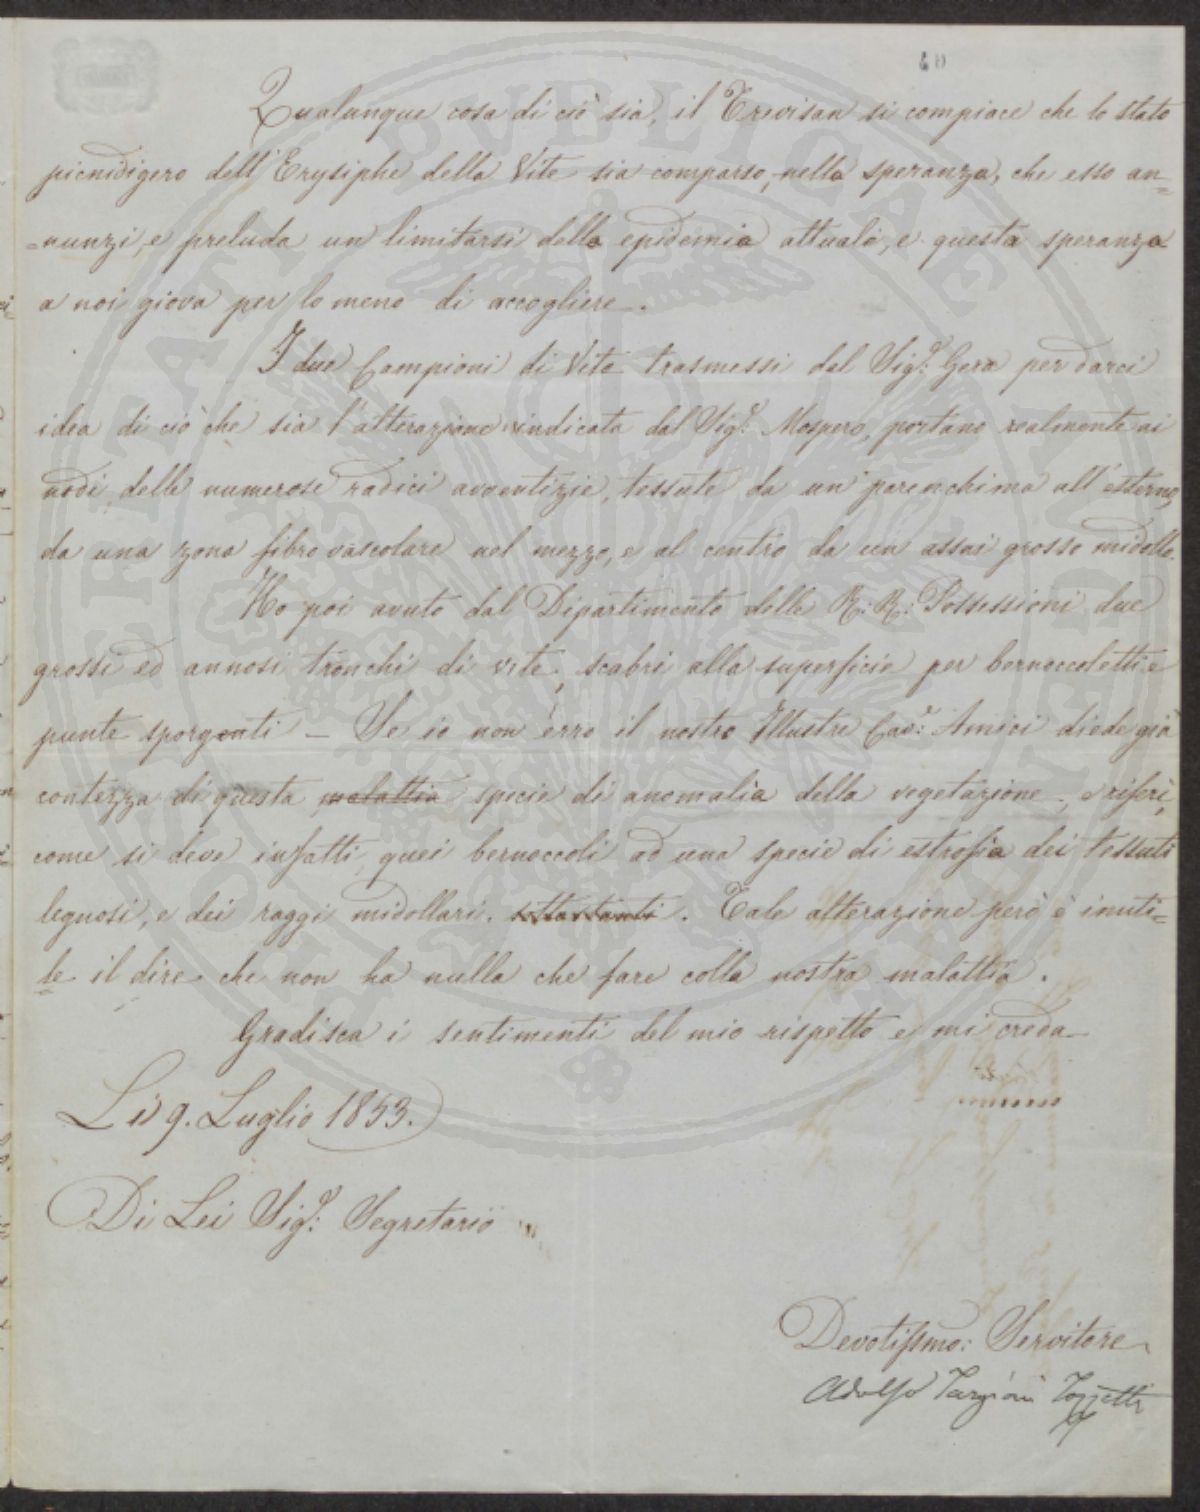 40
Qualunque cosa di ciò sia, il Trevisan si compiace che lo stato
picnidigero dell'Erysiphe della Vite sia comparso, nella speranza, che esso an=
=nunzi, e preluda un limitarsi della epidemia attuale, e questa speranza
a noi giova per lo meno di accogliere.
I due Campioni di Vite trasmessi dal Sig.r Gera per darci
idea di ciò che sia l'alterazione indicata dal Sig.r Maspero, portano realmente ai
nodi delle numerose radici avventizie, tessute da un parenchima all'esterno,
da una zona fibrovascolare nel mezzo, e al centro da un assai grosso midollo.
Ho poi avuto dal Dipartimento delle R: R: Possessioni due
grossi ed annosi tronchi di vite, scabri alla superficie per bernoccoletti e
punte sporgenti – Se io non erro il nostro Illustre Cav.r Amici diede già
contezza di questa malattia specie di anomalia della vegetazione, e riferì,
come si deve infatti, quei bernoccoli ad una specie di estrofia dei tessuti
legnosi, e dei raggi midollari. sottostanti. Tale alterazione però è inuti=
le il dire che non ha nulla che fare colla nostra malattia.
Gradisca i sentimenti del mio rispetto e mi creda
Li 9. Luglio 1853.
Di Lei Sig.r Segretario
Devotissmo: Servitore
Adolfo Targioni Tozzetti